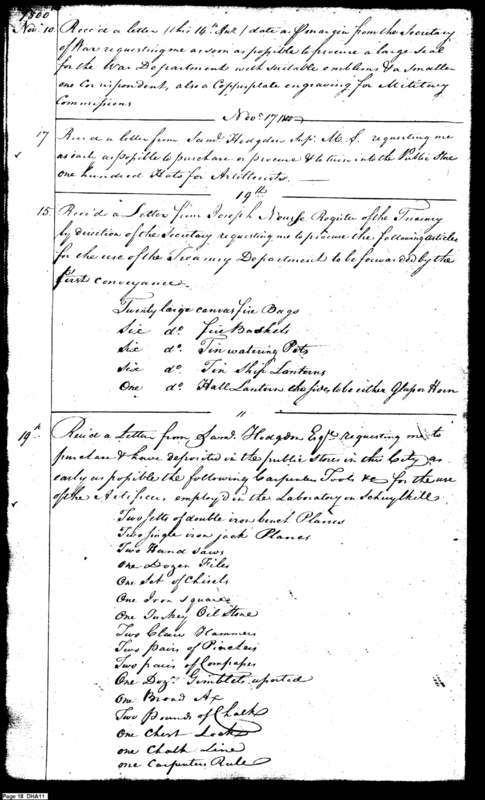 1800
Novr. 10. Receiv'd a letter (this 14th Inst.) date as pr margin from the Secretary
of War requesting me as soon as possible to procure a large Seal
for the War Department with suitable emblems & a smaller
one Correspondent, also a Copperplate engraving for Military
Commissions
Novr. 17 1800
17 Receiv'd a letter from Saml. Hodgdon Supt. M. S. requesting me
as early as possible to purchase or procure & to turn into the Public Store
one hundred Hats for Artillerists.
19th
15. Receiv'd a Letter from Joseph Nourse Register of the Treasury
by direction of the Secretary requesting me to procure the following articles
for the use of the Treasury Department to be forwarded by the
first conveyance.
Twenty large canvas fire Bags
Six do. fire Baskets
Six do. Tin watering Pots
Six do. Tin Ship Lanterns
One do. Hall Lantern the sides to be either Glass or Horn
"
19th Receiv'd a Letter from Saml. Hodgdon Esqr. requesting me to
purchase & have deposited in the public Stores in this City as
early as possible the following Carpenters Tools &c for the use
of the Artificers employ'd in the Laboratory on Schuylkill
Two setts of double iron bench Planes
Two single iron jack Planes
Two Hand saws
One Dozen Files
One Set of Chisels
One Iron square
One Turkey Oil Stone
Two Claw Hammers
Two pairs of Pinchers
Two pairs of Compasses
One Dozn. Gimblets assorted
One Broad Ax
Two Pounds of Chalk
One Chest Lock
one Chalk Line
one Carpenters Rule
Page 18 DHA11